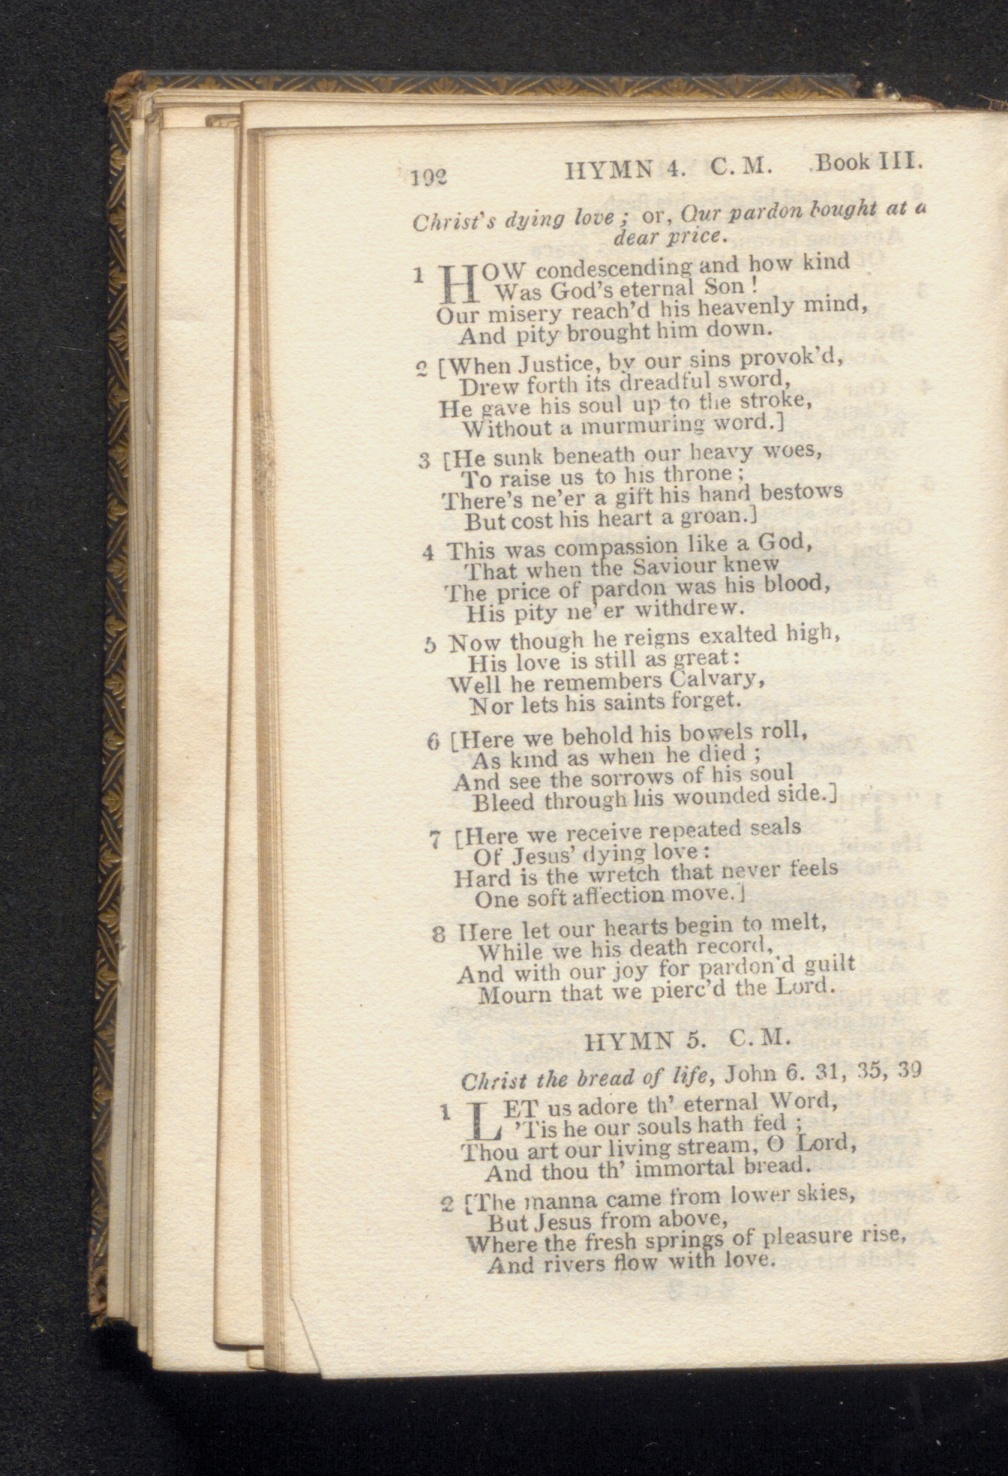 192 HYMN 4. C. M. Book III.
Christ's dying love; or, Our pardon bought at a
dear price.
1 HOW condescending and how kind
Was God's eternal Son!
Our misery reach'd his heavenly mind,
And pity brought him down.
2 [When Justice, by our sins provok'd,
Drew forth its dreadful sword,
He gave his soul up to the stroke,
Without a murmuring word.]
3 [He sunk beneath our heavy woes,
To raise us to his throne;
There's ne'er a gift his hand bestows
But cost his heart a groan.]
4 This was compassion like a God,
That when the Saviour knew
The price of pardon was his blood,
His pity ne'er withdrew.
5 Now though he reigns exalted high,
His love is still as great:
Well he remembers Calvary,
Nor lets his saints forget.
6 [Here we behold his bowels roll,
As kind as when he died;
And see the sorrows of his soul
Bleed through his wounded side.]
7 [Here we receive repeated seals
Of Jesus' dying love:
Hard is the wretch that never feels
One soft affection move.]
8 Here let our hearts begin to melt,
While we his death record,
And with our joy for pardon'd guilt
Mourn that we pierc'd the Lord.
HYMN 5. C. M.
Christ the bread of life, John 6. 31, 35, 39
1 LET us adore th' eternal Word,
'Tis he our souls hath fed;
Thou art our living stream, O Lord,
And thou th' immortal bread.
2 [The manna came from lower skies,
But Jesus from above,
Where the fresh springs of pleasure rise,
And rivers flow with love.